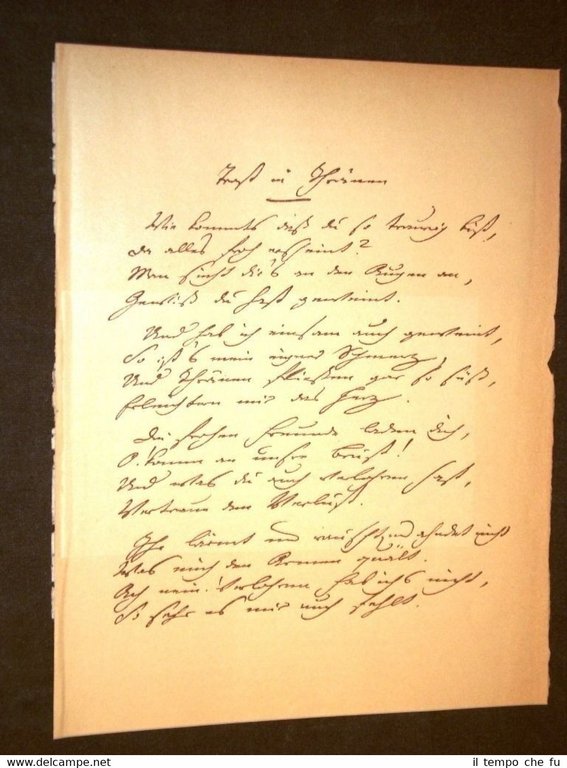 Trost in Thränen
Wie kommts daß du so traurig bist,
da alles froh erscheint?
Man sieht dir's an den Augen an,
Gewiß du hast geweint.
Und hab ich einsam auch geweint,
So ist's mein eigner Schmerz,
Und Thränen fließen gar so süß,
Erleichtern mir das Herz.
Die frohen Freunde laden dich,
O! komm an unsre Brust!
Und was du auch verlohren hast,
Vertraue den Verlust.
Ihr lärmt und rauscht und ahndet nicht
Was mich den Armen quält.
Ach nein! Verlohren hab ichs nicht,
So sehr es mir auch fehlt.
www.maremagnum.com
il tempo che fu